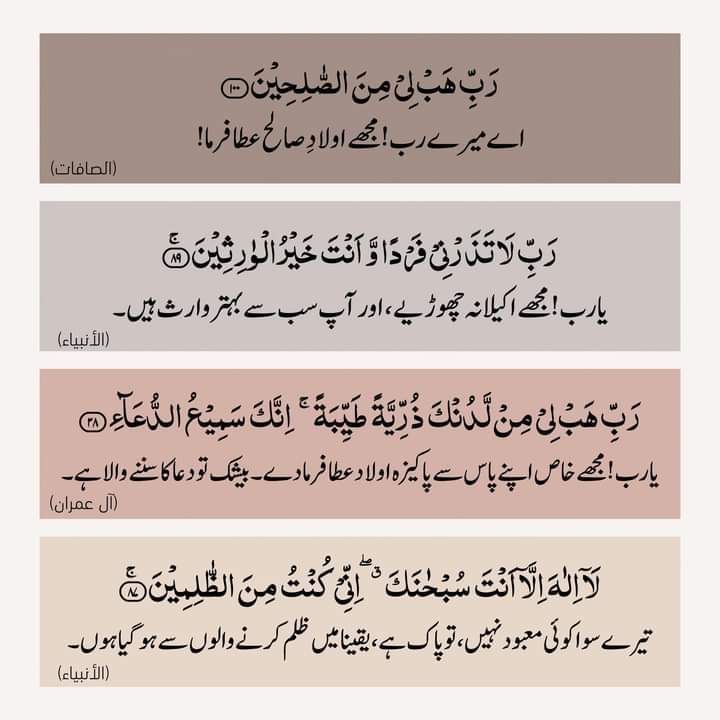 رَبِّ هَبْ لِيْ مِنَ الصّٰلِحِيْنَ ۝۱۰۰
اے میرے رب! مجھے اولادِ صالح عطا فرما!
(الصافات)
رَبِّ لَا تَذَرْنِيْ فَرْدًا وَّ اَنْتَ خَيْرُ الْوٰرِثِيْنَ ۝۸۹ ۚ
یارب! مجھے اکیلا نہ چھوڑیے، اور آپ سب سے بہتر وارث ہیں۔
(الأنبياء)
رَبِّ هَبْ لِيْ مِنْ لَّدُنْكَ ذُرِّيَّةً طَيِّبَةً ۚ اِنَّكَ سَمِيْعُ الدُّعَآءِ ۝۳۸
یارب! مجھے خاص اپنے پاس سے پاکیزہ اولاد عطا فرما دے۔ بیشک تو دعا کا سننے والا ہے۔
(آل عمران)
لَاۤ اِلٰهَ اِلَّاۤ اَنْتَ سُبْحٰنَكَ ۖۗ اِنِّيْ كُنْتُ مِنَ الظّٰلِمِيْنَ ۝۸۷ ۚ
تیرے سوا کوئی معبود نہیں، تو پاک ہے، یقینا میں ظلم کرنے والوں سے ہو گیا ہوں۔
(الأنبياء)